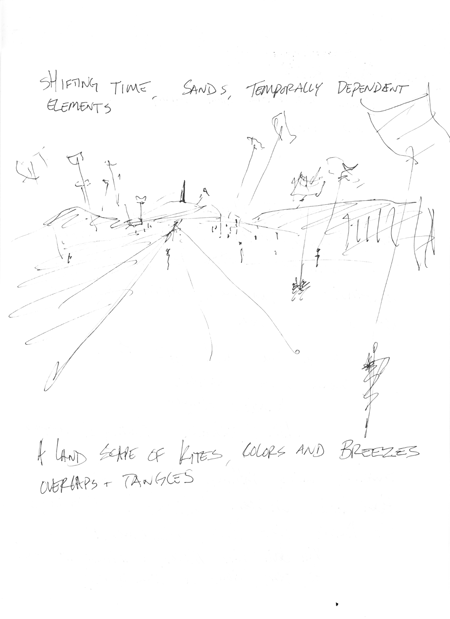 SHIFTING TIME, SANDS, TEMPORALLY DEPENDENT
ELEMENTS
A LAND SCAPE OF KITES, COLORS AND BREEZES
OVERLAPS + TANGLES